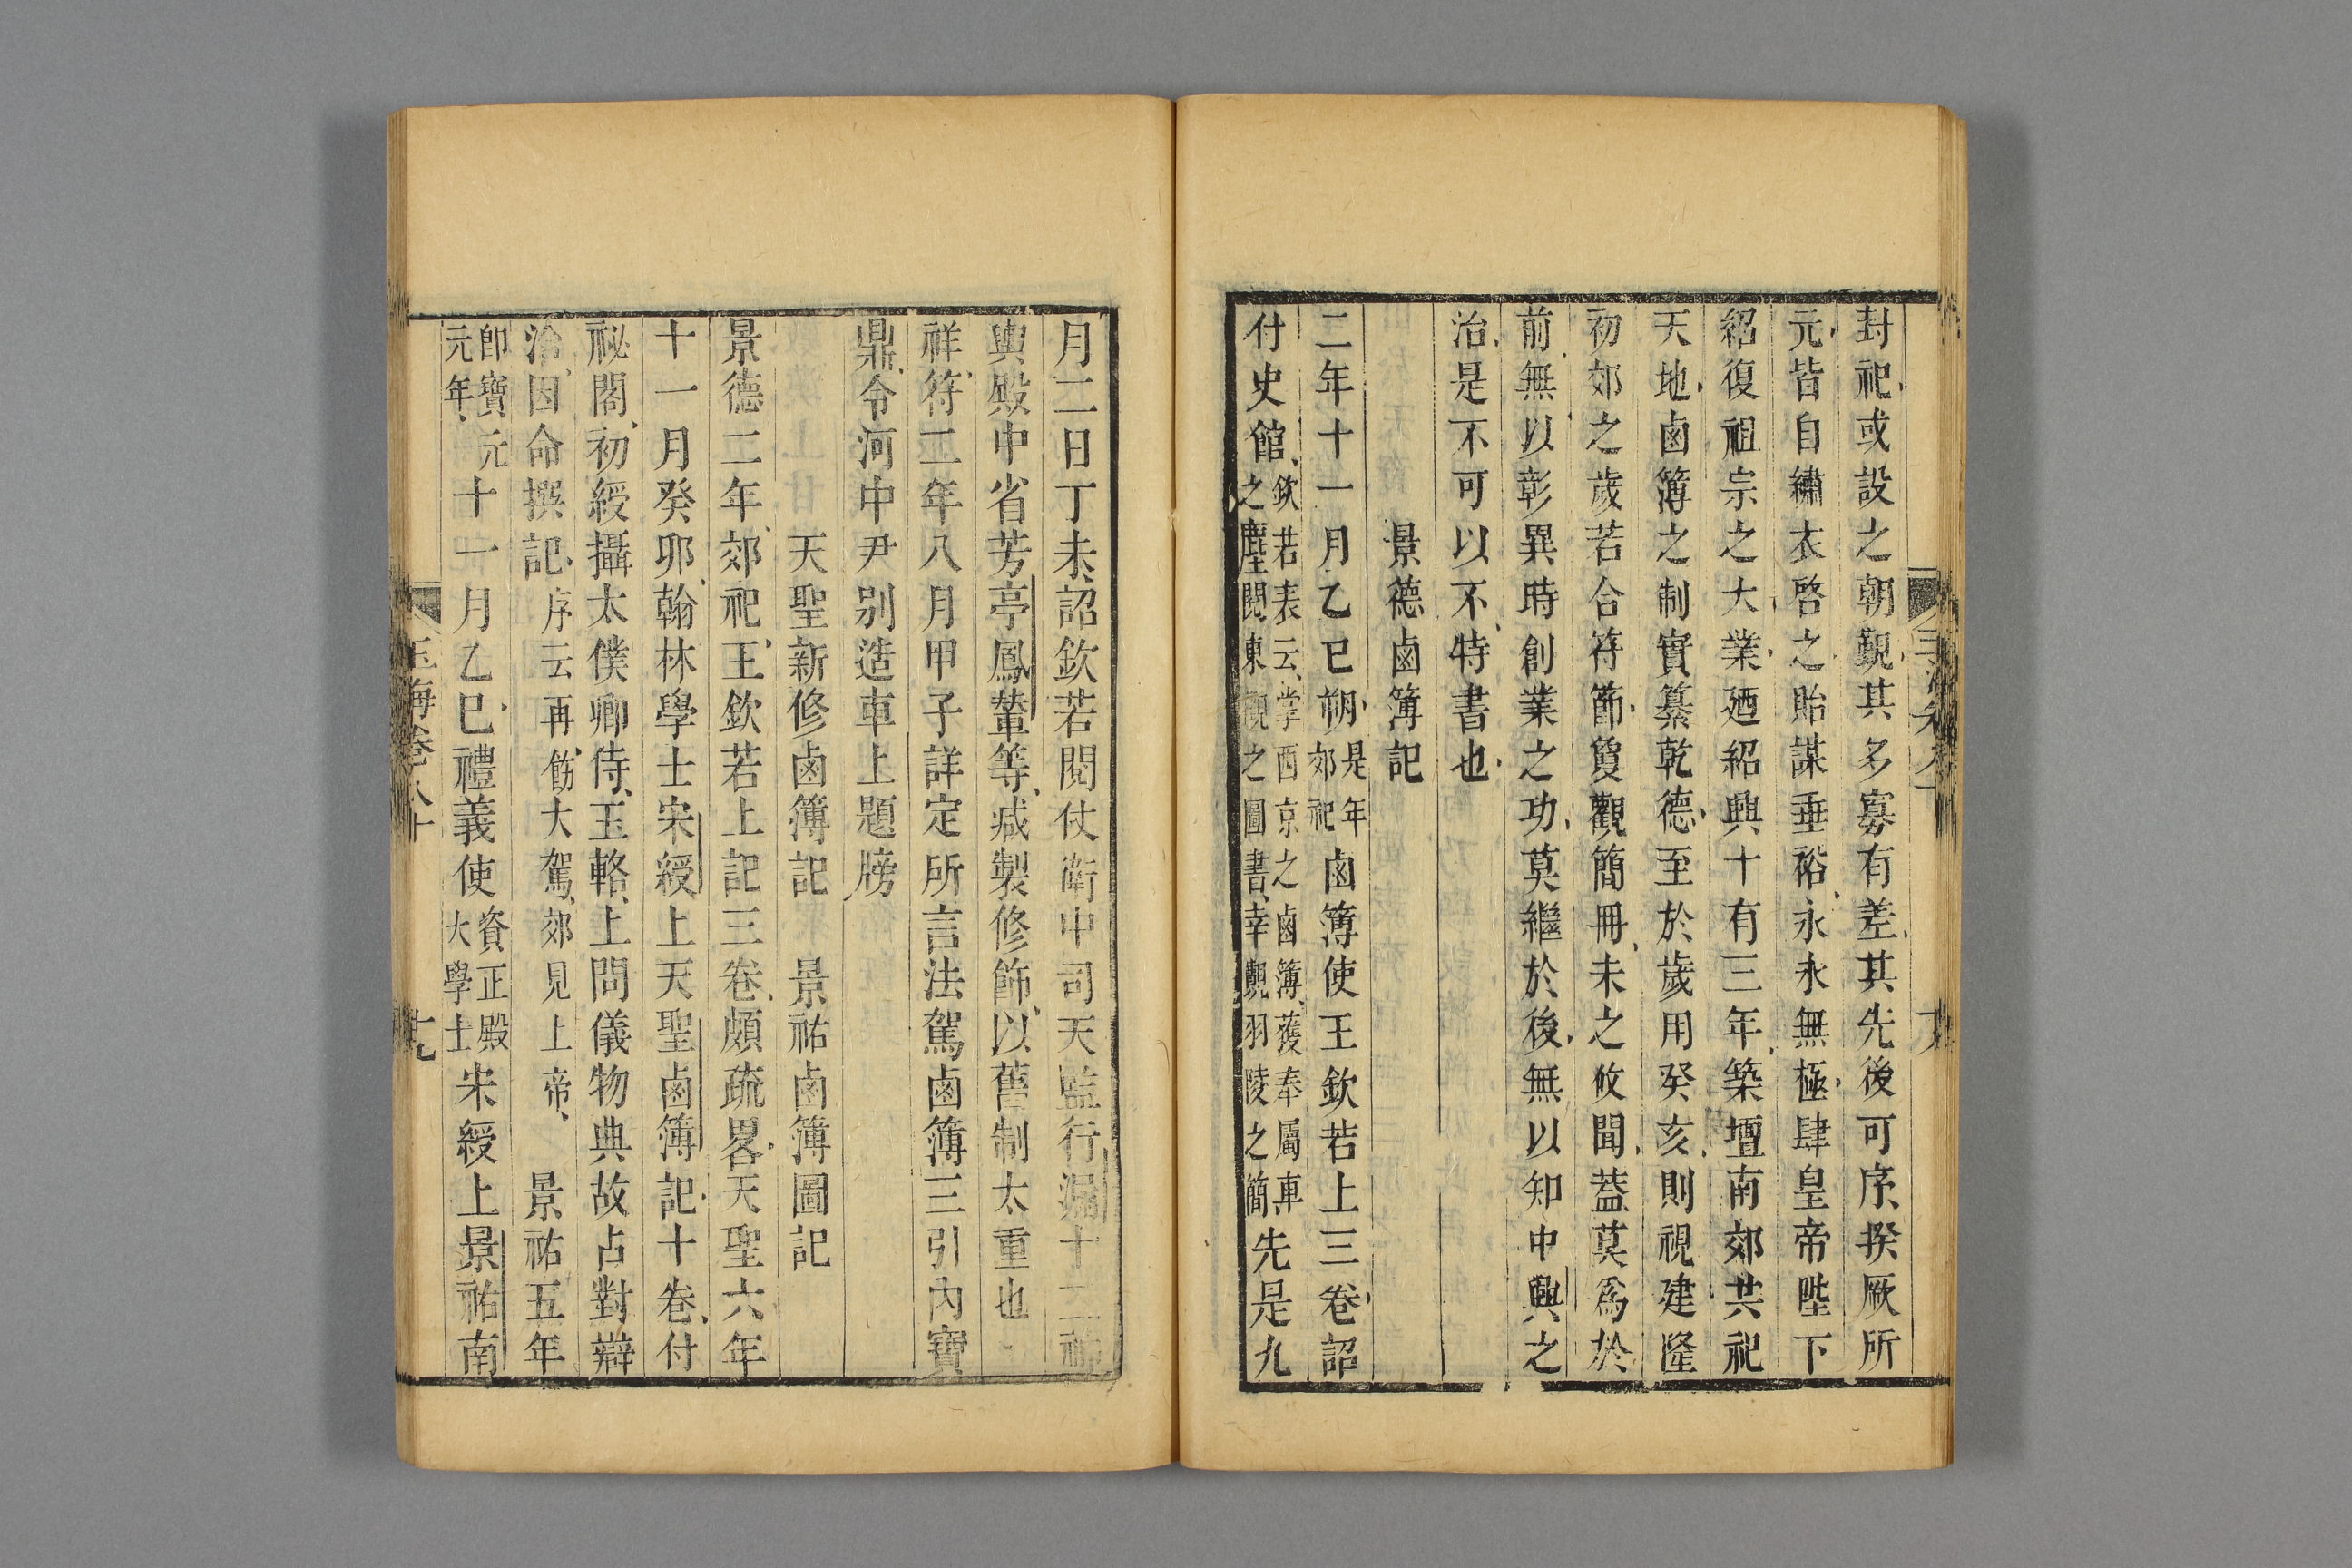 封祀或設之朝覲其多寡有差其先後可序揆厥所
元皆自繡衣啓之貽謀垂裕永永無極肆皇帝陛下
紹復祖宗之大業廼紹興十有三年築壇南郊共祀
天地鹵簿之制實纂乾德至於歲用癸亥則視建隆
初郊之歲若合符節夐觀簡冊未之攸聞蓋莫爲於
前無以彰異時創業之功莫繼於後無以知中興之
治是不可以不特書也
景德鹵簿記
二年十一月乙巳朔是年郊祀鹵簿使王欽若上三卷詔
付史館欽若表云掌西京之鹵簿獲奉屬車之塵閱東觀之圖書幸觀羽陵之簡先是九
月二日丁未詔欽若閱仗衛中司天監行漏十二神
輿殿中省芳亭鳳輦等减製修飾以舊制太重也
祥符二年八月甲子詳定所言法駕鹵簿三引內寶
鼎令河中尹别造車上題牓
天聖新修鹵簿記 景祐鹵簿圖記
景德二年郊祀王欽若上記三卷頗疏畧天聖六年
十一月癸卯翰林學士宋綬上天聖鹵簿記十卷付
祕閣初綬攝太僕卿侍玉輅上問儀物典故占對辯
洽因命撰記序云再飭大駕郊見上帝 景祐五年
即寶元元年十一月乙巳禮義使資正殿大學士宋綬上景祐南
玉海卷八十
十九